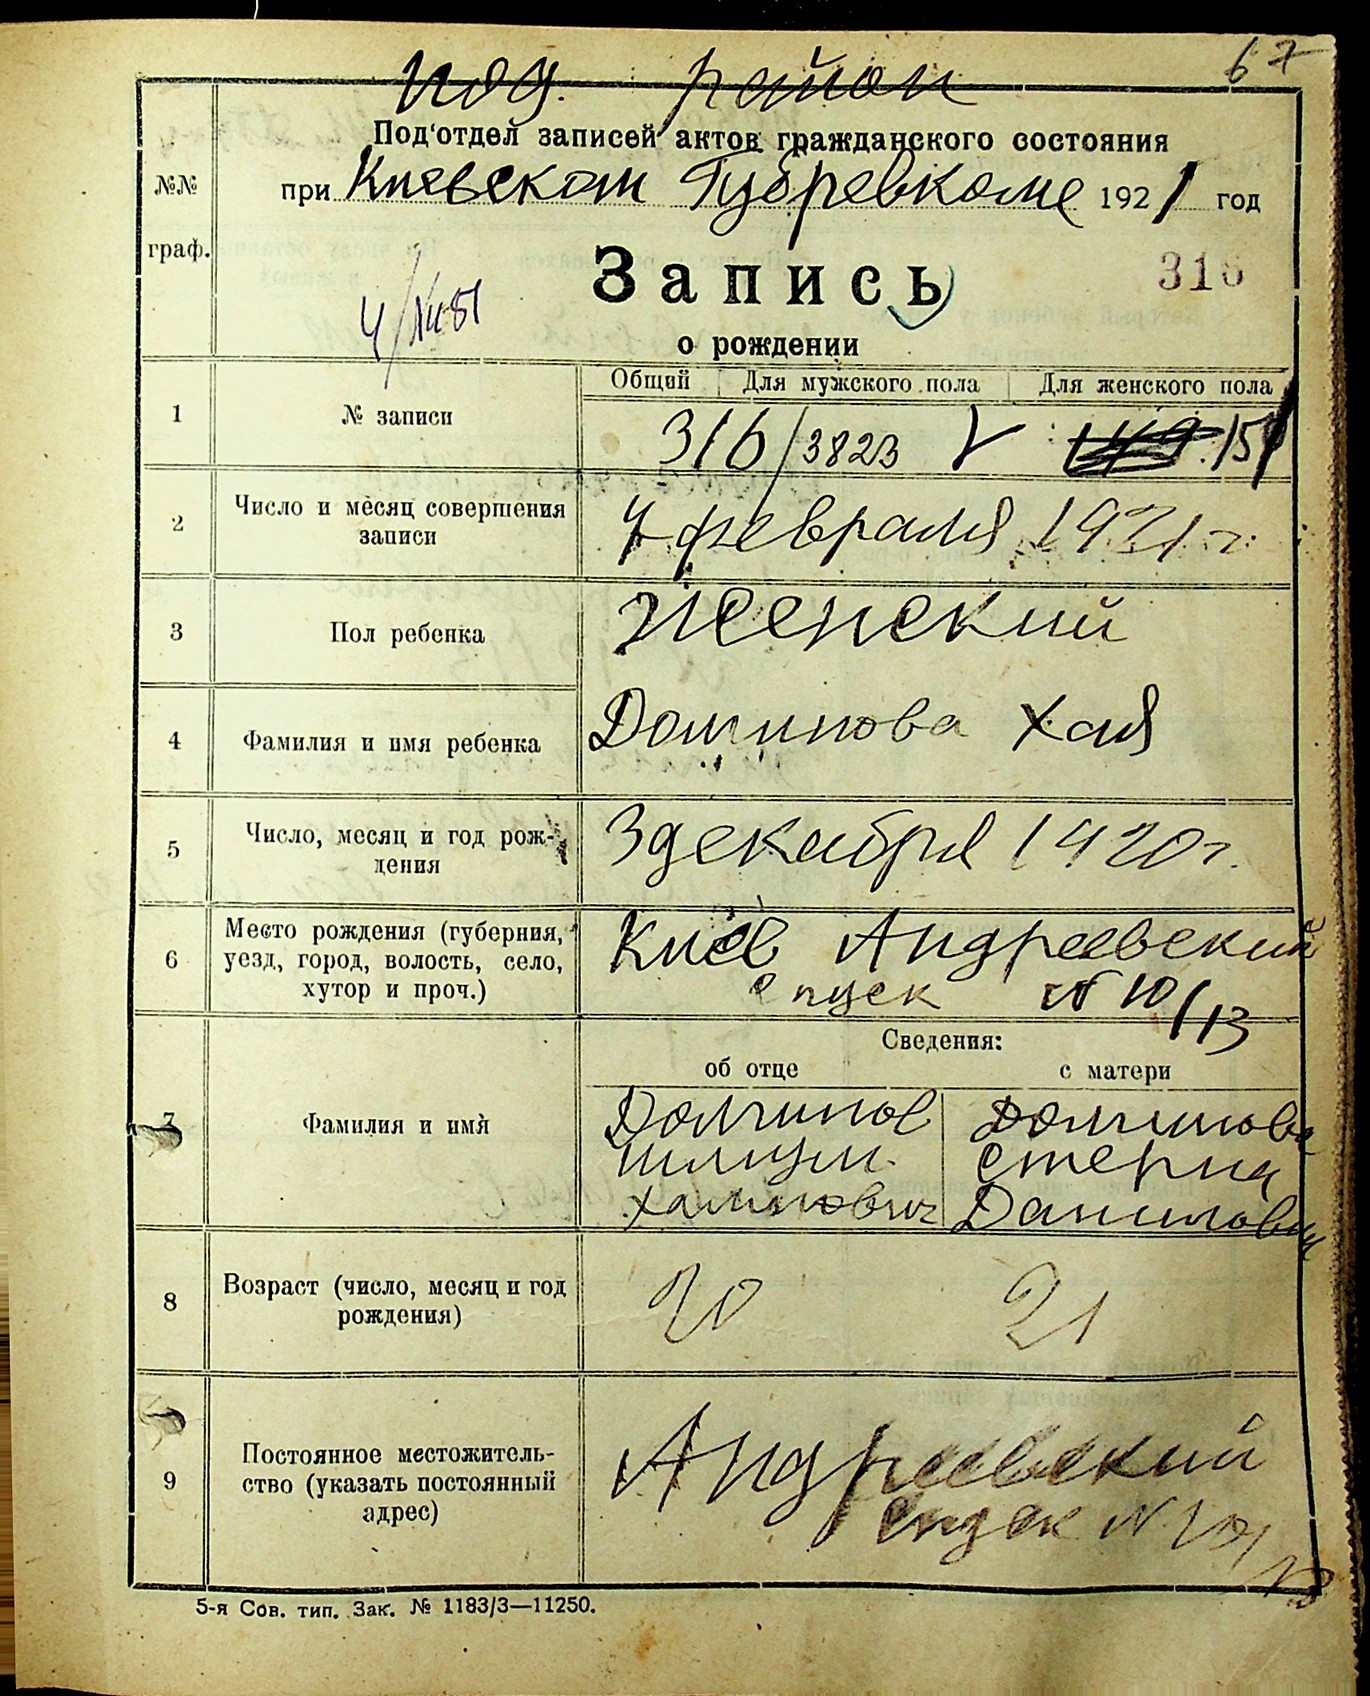 под. район
67
Под'отдел записей актов гражданского состояния
№№ при Киевском Губревкоме 1921 год
граф.
Запись
316
о рождении
Общий Для мужского пола Для женского пола
1 № записи 316/3823 151
2 Число и месяц совершения записи 4 февраля 1921 г.
3 Пол ребенка Женский
4 Фамилия и имя ребенка Долинова Хая
5 Число, месяц и год рож-
дения 3 декабря 1920 г.
6 Место рождения (губерния,
уезд, город, волость, село,
хутор и проч.) Киев Андреевский
спуск № 10/13
Сведения:
об отце с матери
7 Фамилия и имя
Долинов Долинова
Шлиум Стерна
Хаимович Даниловн
8 Возраст (число, месяц и год
рождения) 20 21
9 Постоянное местожитель-
ство (указать постоянный
адрес) Андреевский
спуск № 10/13
5-я Сов. тип. Зак. № 1183/3—11250.